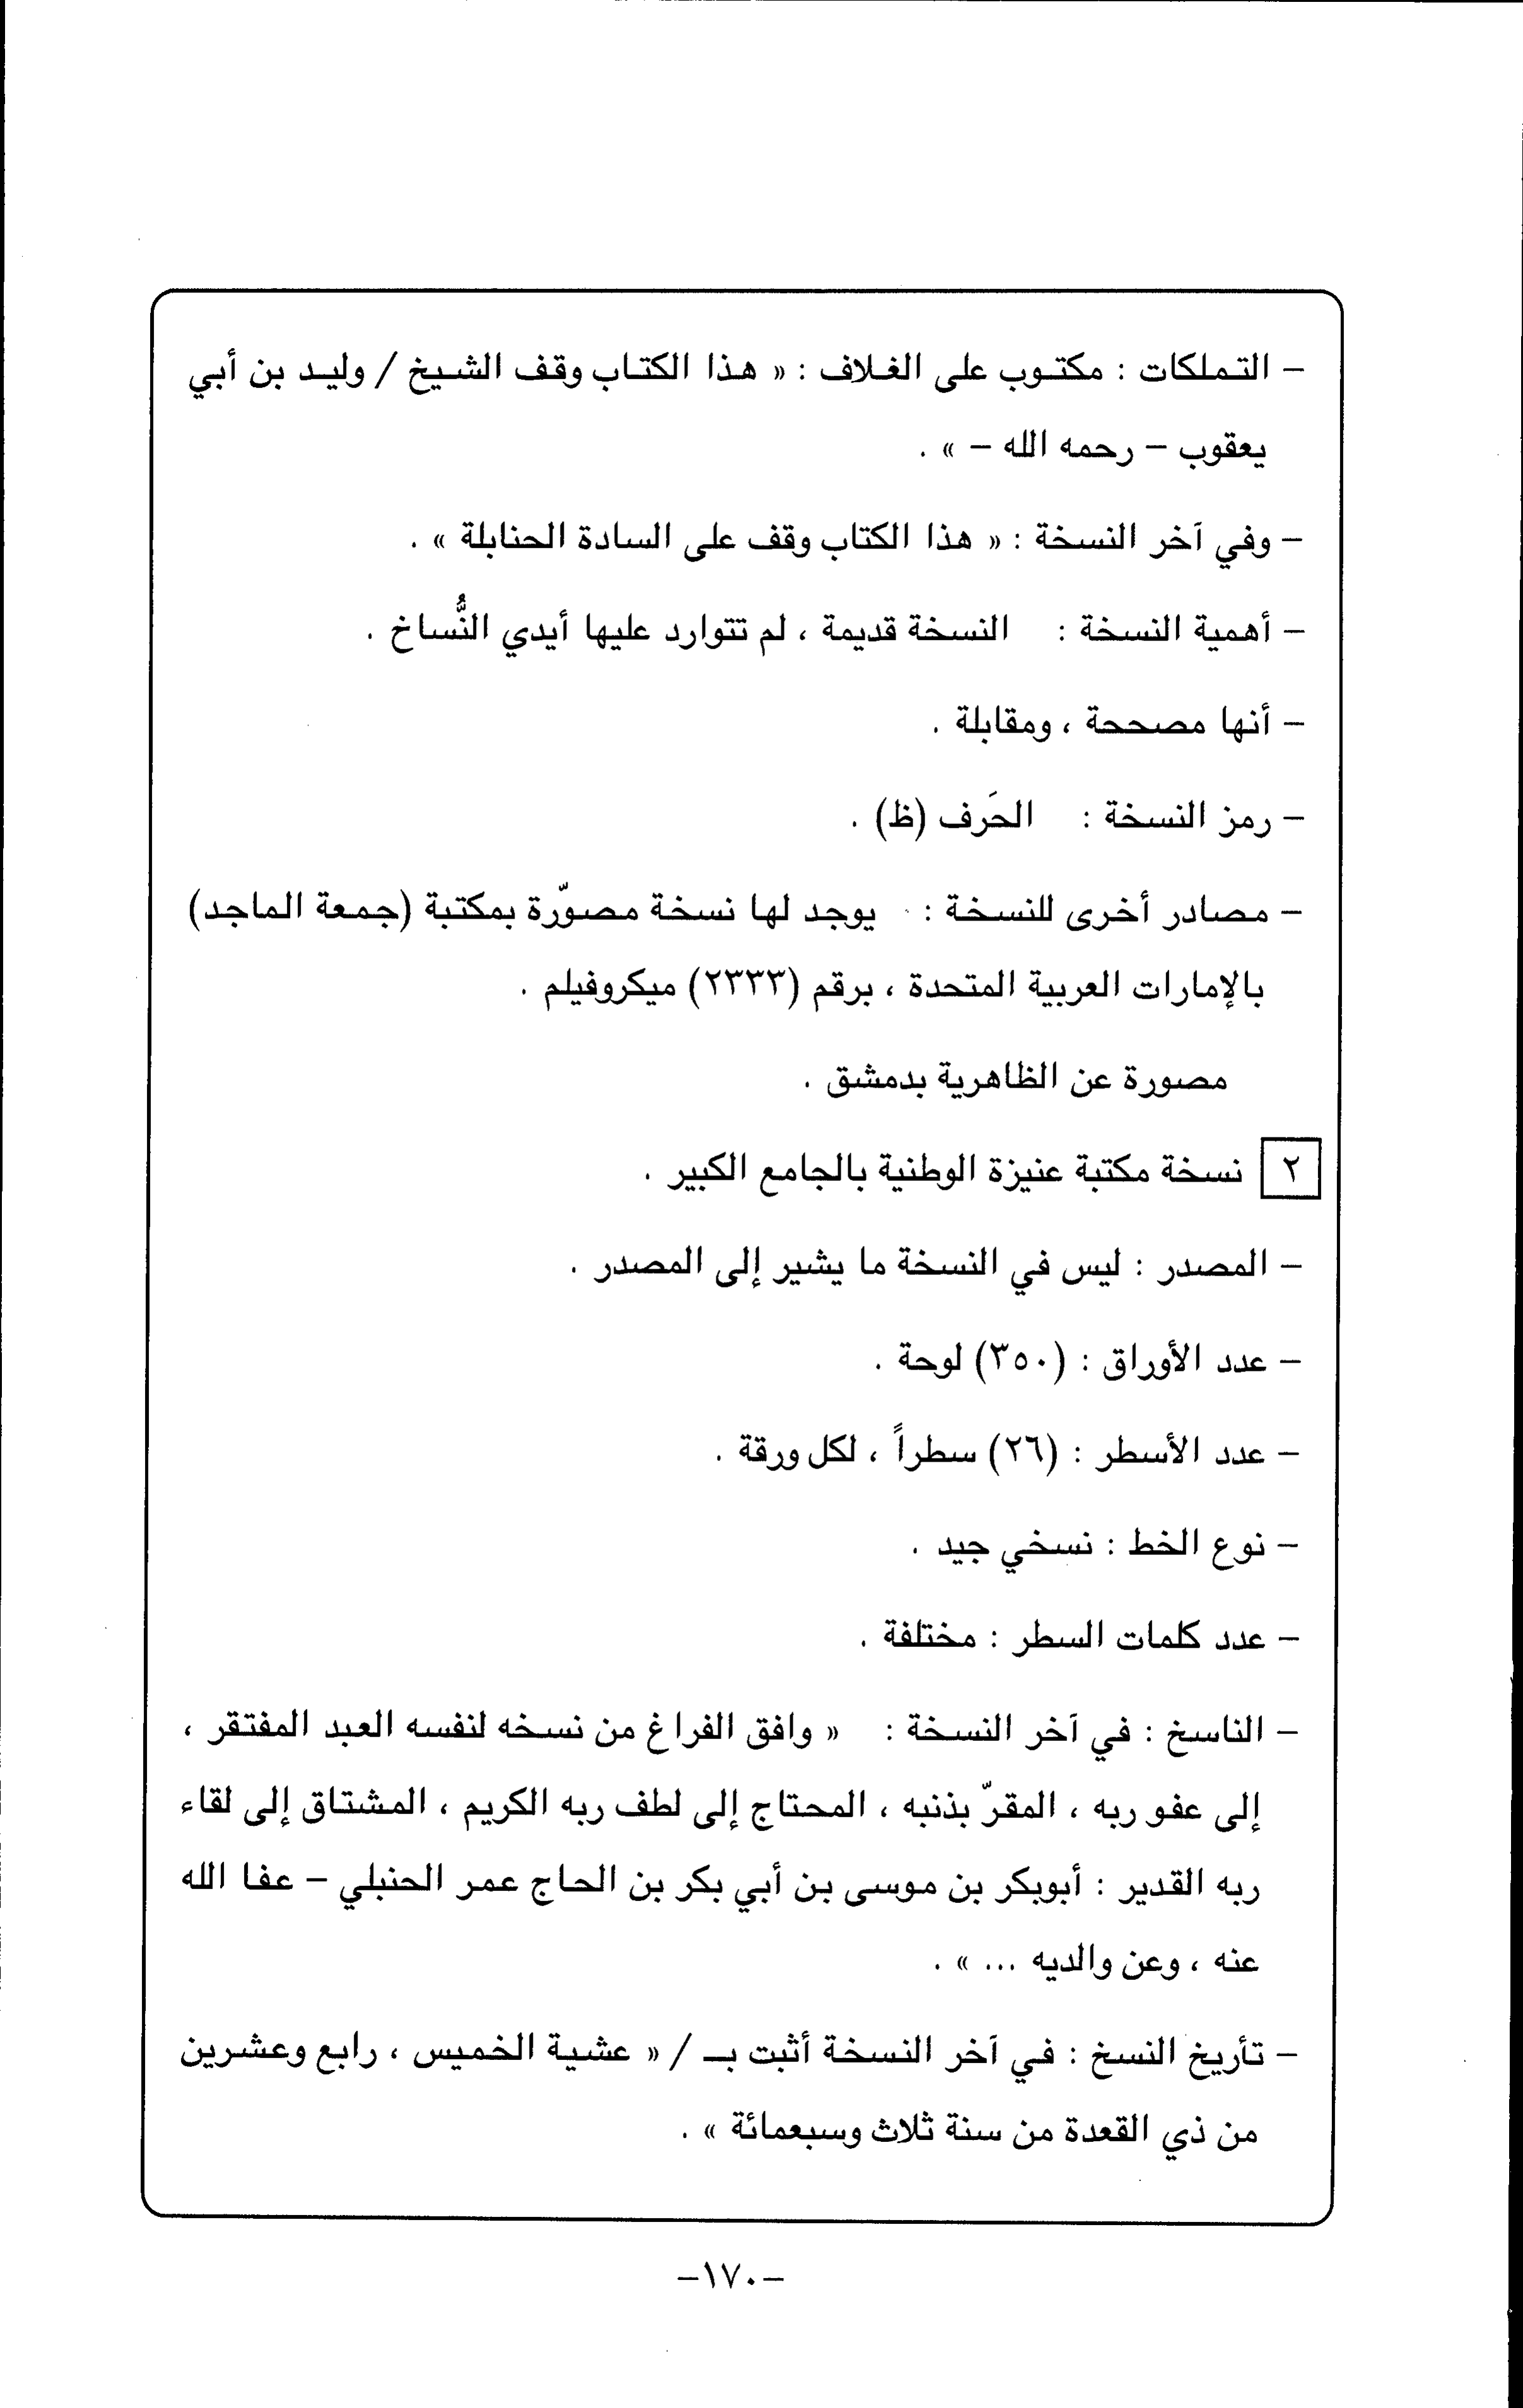 – التملكات : مكتوب على الغلاف : « هذا الكتاب وقف الشيخ / وليد بن أبي
يعقوب – رحمه الله – » .
– وفي آخر النسخة : « هذا الكتاب وقف على السادة الحنابلة » .
– أهمية النسخة : النسخة قديمة ، لم تتوارد عليها أيدي النُّساخ .
– أنها مصححة ، ومقابلة .
– رمز النسخة : الحَرف (ظ) .
– مصادر أخرى للنسخة : يوجد لها نسخة مصوّرة بمكتبة (جمعة الماجد)
بالإمارات العربية المتحدة ، برقم (٢٣٣٣) ميكروفيلم .
مصورة عن الظاهرية بدمشق .
٢ نسخة مكتبة عنيزة الوطنية بالجامع الكبير .
– المصدر : ليس في النسخة ما يشير إلى المصدر .
– عدد الأوراق : (٣٥٠) لوحة .
– عدد الأسطر : (٢٦) سطراً ، لكل ورقة .
– نوع الخط : نسخي جيد .
– عدد كلمات السطر : مختلفة .
– الناسخ : في آخر النسخة : « وافق الفراغ من نسخه لنفسه العبد المفتقر ،
إلى عفو ربه ، المقرّ بذنبه ، المحتاج إلى لطف ربه الكريم ، المشتاق إلى لقاء
ربه القدير : أبوبكر بن موسى بن أبي بكر بن الحاج عمر الحنبلي – عفا الله
عنه ، وعن والديه ... » .
– تأريخ النسخ : في آخر النسخة أثبت بـ / « عشية الخميس ، رابع وعشرين
من ذي القعدة من سنة ثلاث وسبعمائة » .
–١٧٠–